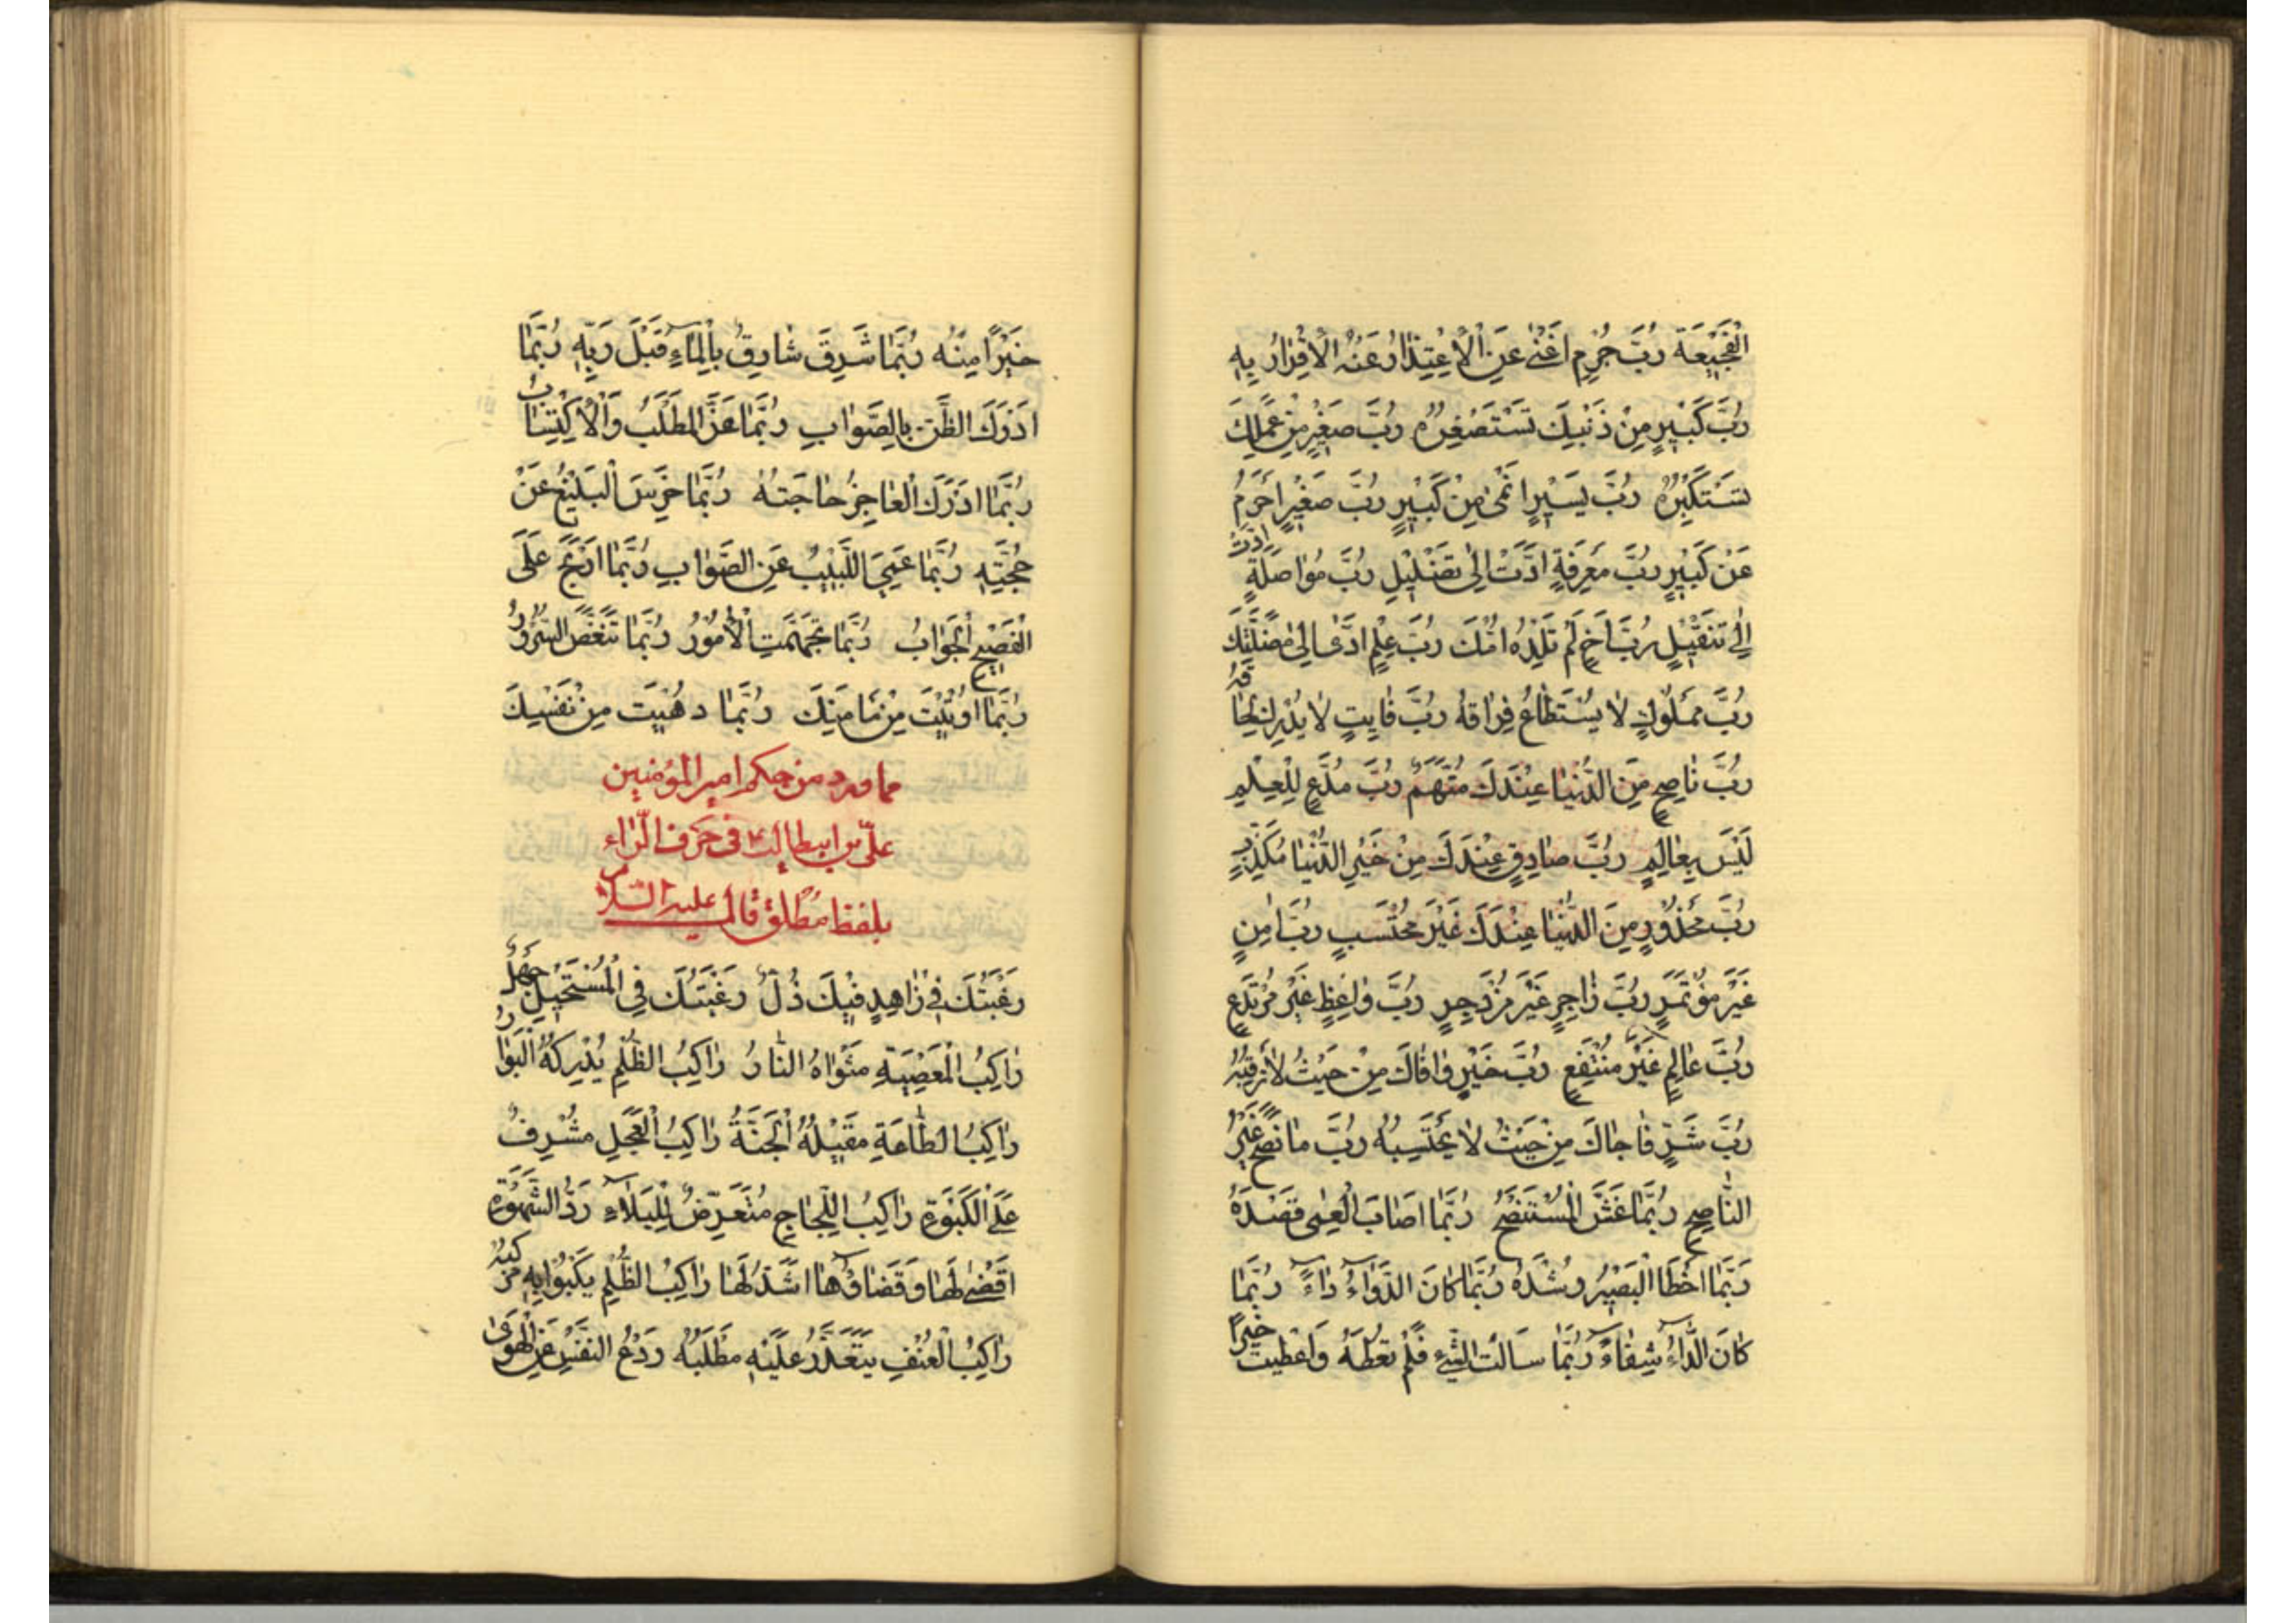 الْفَجْیِعَةَ رُبَّ جُرْمٍ اَغْنٰی عَنِ الْاِعْتِذٰارُ عَنْهُ الْاِقْرٰارُ بِهِ
رُبَّ کَبٖیرٍ مِنْ ذَنْبِكَ تَسْتَصْغِرُهُ رُبَّ صَغٖیرٍ مِنْ عَمَلِكَ
تَسْتَکْبِرُهُ رُبَّ یَسٖیرٍ اَنْمٰی مِنْ کَبٖیرٍ رُبَّ صَغٖیرٍ اَحْزَمُ
عَنْ کَبٖیرٍ رُبَّ مَعْرِفَةٍ اَدَّتْ اِلٰی تَضْلٖیلٍ رُبَّ مُوٰاصَلَةٍ اَدَّتْ
اِلٰی تَثْقٖیلٍ رُبَّ اَخٍ لَمْ تَلِدْهُ اُمُّكَ رُبَّ عِلْمٍ اَدّٰی اِلٰی مَضَلَّتِكَ
رُبَّ مَمْلُوكٍ لاٰ یُسْتَطٰاعُ فِرٰاقُهُ رُبَّ فٰایِتٍ لاٰ یُدْرَكُ لَحٰاقُهُ
رُبَّ نٰاصِحٍ مِنَ الدُّنْیٰا عِنْدَكَ مُتَّهَمٌ رُبَّ مُدَّعٍ لِلْعِلْمِ
لَیْسَ بِعٰالِمٍ رُبَّ صٰادِقٍ عِنْدَكَ مِنْ خَبَرِ الدُّنْیٰا مُکَذَّبٍ
رُبَّ مَحْذُورٍ مِنَ الدُّنْیٰا عِنْدَكَ غَیْرَ مُحْتَسَبٍ رُبَّ اٰمِنٍ
غَیْرَ مُؤْتَمَرٍ رُبَّ زٰاجِرٍ غَیْرَ مُزْدَجِرٍ رُبَّ وٰاعِظٍ غَیْرَ مُرْتَدِعٍ
رُبَّ عٰالِمٍ غَیْرُ مُنْتَفِعٍ رُبَّ خَیْرٍ وٰافٰاكَ مِنْ حَیْثُ لاٰ تَرْتَقِبُهُ
رُبَّ شَرٍّ فٰاجٰاكَ مِنْ حَیْثُ لاٰ تَحْتَسِبُهُ رُبَّ مٰا نَصَحَ غَیْرُ
النّٰاصِحِ رُبَّمٰا غَشَّ الْمُسْتَنْصَحُ رُبَّمٰا اَصٰابَ الْعَمٰی قَصْدَهُ
رُبَّمٰا اَخْطَا الْبَصٖیرُ رُشْدَهُ رُبَّمٰا کٰانَ الدَّوٰاءُ دٰاءً رُبَّمٰا
کٰانَ الدّٰاءُ شِفٰاءً رُبَّمٰا سَاَلْتَ الشَّیْءَ فَلَمْ تُعْطَهُ وَاُعْطٖیتَ خَیْرًا
خَیْرًا مِنْهُ رُبَّمٰا شَرِقَ شٰارِقٌ بِالْمٰاءِ قَبْلَ رَیِّهِ رُبَّمٰا
اَدْرَكَ الظَّنُّ بِالصَّوٰابِ رُبَّمٰا عَزَّ الْمَطْلَبُ وَالْاِکْتِسٰابُ
رُبَّمٰا اَدْرَكَ الْعٰاجِزُ حٰاجَتَهُ رُبَّمٰا خَرِسَ الْبَلٖیغُ عَنْ
حُجَّتِهِ رُبَّمٰا عَمِیَ اللَّبٖیبُ عَنِ الصَّوٰابِ رُبَّمٰا اَرْتَجَ عَلَی
الْفَصٖیحِ الْجَوٰابُ رُبَّمٰا تَجَهَّمَتِ الْاُمُورُ رُبَّمٰا تَنَغَّصَ السُّرُورُ
رُبَّمٰا اُوتٖیتَ مِنْ مَا مَنِكَ رُبَّمٰا دُهٖیتَ مِنْ نَفْسِكَ
مما ورد من حکم امیر المؤمنین
علیّ بن ابیطالب ع فی حرف الرّاء
بلفظ مطلق قال علیه السّلام
رَغْبَتُكَ فٖی زٰاهِدٍ فٖیكَ ذُلٌّ رَغْبَتُكَ فِی الْمُسْتَحٖیلِ جَهْلٌ
رٰاکِبُ الْمَعْصِیَةِ مَثْوٰاهُ النّٰارُ رٰاکِبُ الظُّلْمِ یُدْرِکُهُ الْبَوٰارُ
رٰاکِبُ الطّٰاعَةِ مَقٖیلُهُ الْجَنَّةُ رٰاکِبُ الْعَجَلِ مُشْرِفٌ
عَلَی الْکَبْوَةِ رٰاکِبُ اللَّجٰاجِ مُتَعَرِّضٌ لِلْبَلاٰءِ رَدُّ الشَّهْوَةِ
اَقْضٰی لَهٰا وَ قَضٰاؤُهٰا اَشَدُّ لَهٰا رٰاکِبُ الظُّلْمِ یَکْبُوا بِهِ مَرْکَبُهُ
رٰاکِبُ الْعُنْفِ یَتَعَذَّرُ عَلَیْهِ مَطْلَبُهُ رَدْعُ النَّفْسِ عَنِ الْهَوٰی